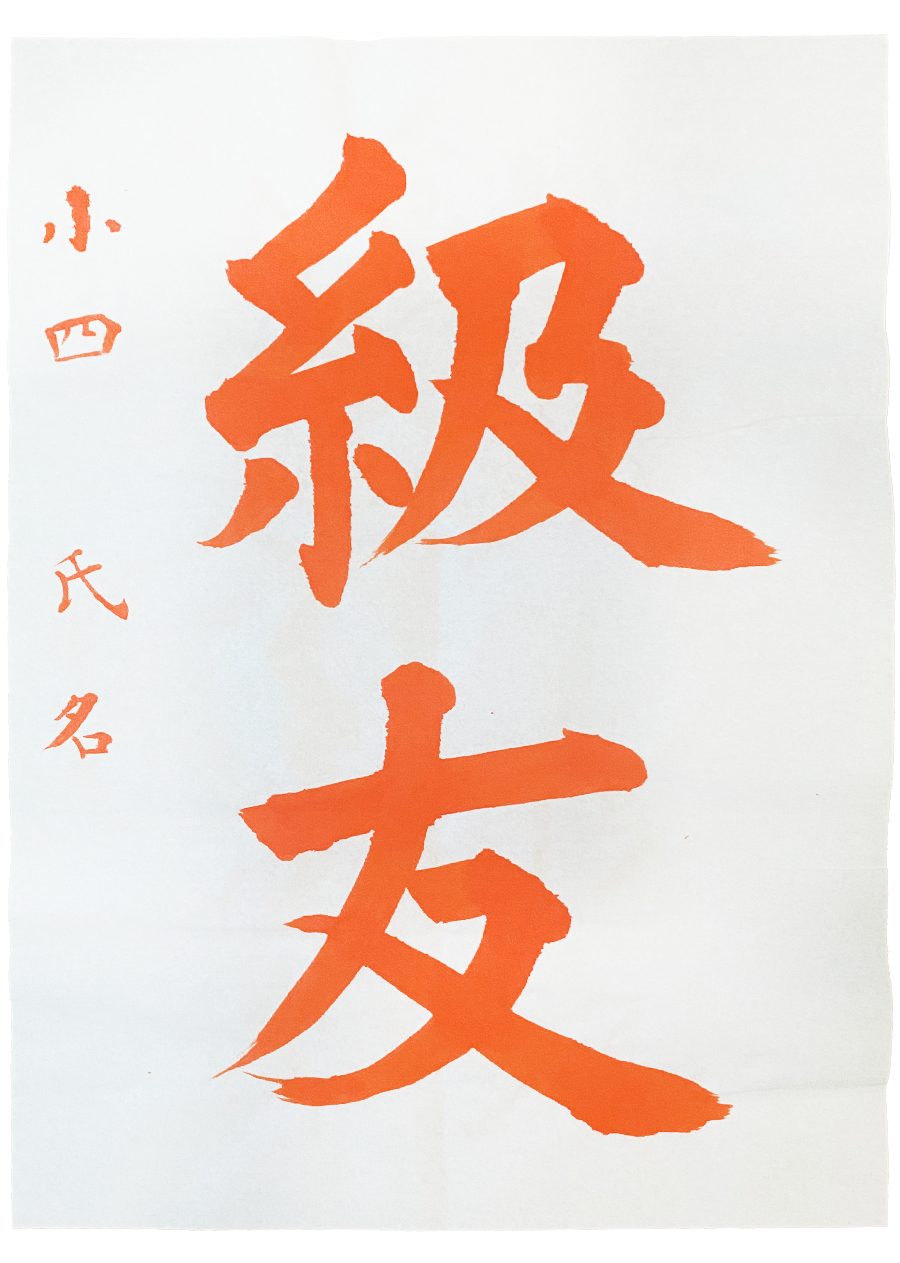 級友
小四 氏名